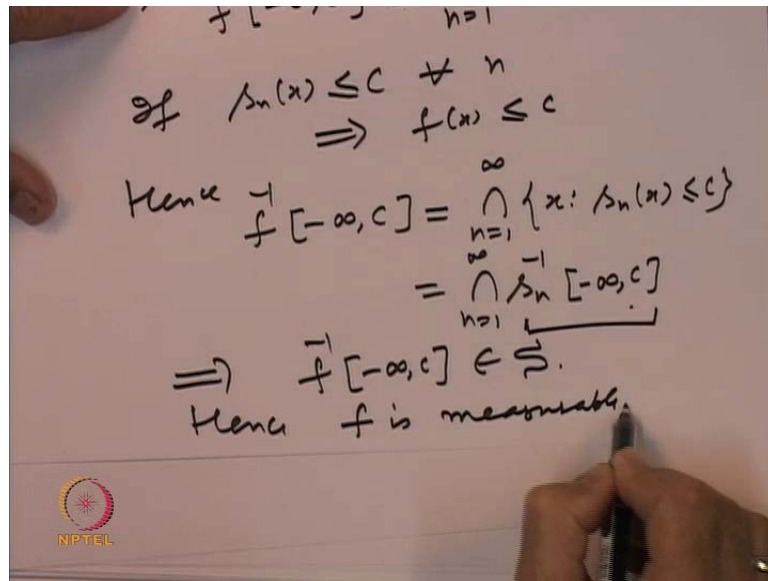 f [-∞,
n=1
If sₙ(x) ≤ C ∀ n
⟹ f(x) ≤ c
Hence f⁻¹[-∞, C] = ∩_{n=1}^{∞} {x: sₙ(x) ≤ C}
= ∩_{n=1}^{∞} sₙ⁻¹ [-∞, C]
⟹ f⁻¹[-∞, C] ∈ S.
Hence f is measurable.
NPTEL